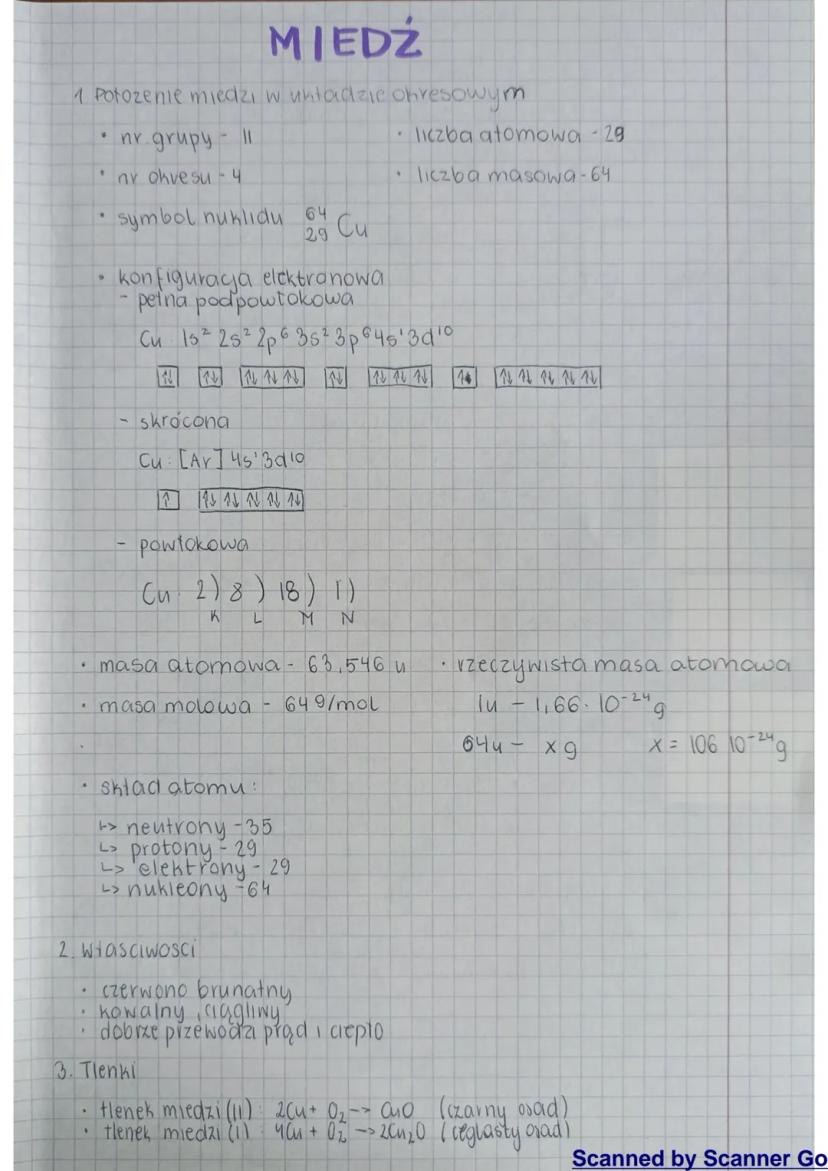 MIEDŹ
1 Położenie miedzi w układzie okresowym
• nr. grupy - 11
• liczba atomowa - 29
• nr okresu - 4
• liczba masowa - 64
• symbol nuklidu ⁶⁴₂₉Cu
• konfiguracja elektronowa
- pełna podpowłokowa
Cu 1s² 2s² 2p⁶ 3s² 3p⁶ 4s¹ 3d¹⁰
- skrócona
Cu: [Ar] 4s¹ 3d¹⁰
- powłokowa
Cu: 2) 8) 18) 1)
K L M N
• masa atomowa - 63,546 u
• rzeczywista masa atomowa
• masa molowa - 64 g/mol
1u - 1,66 · 10⁻²⁴ g
64u - x g x = 106 10⁻²⁴ g
• skład atomu:
↳ neutrony - 35
↳ protony - 29
↳ elektrony - 29
↳ nukleony - 64
2. Właściwości
• czerwono brunatny
• kowalny, ciągliwy
• dobrze przewodzi prąd i ciepło
3. Tlenki
• tlenek miedzi (II): 2Cu + O₂ --> CuO (czarny osad)
• tlenek miedzi (I): 4Cu + O₂ -> 2Cu₂O (ceglasty osad)
Scanned by Scanner Go